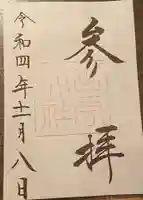 参拝
令和四年十一月八日